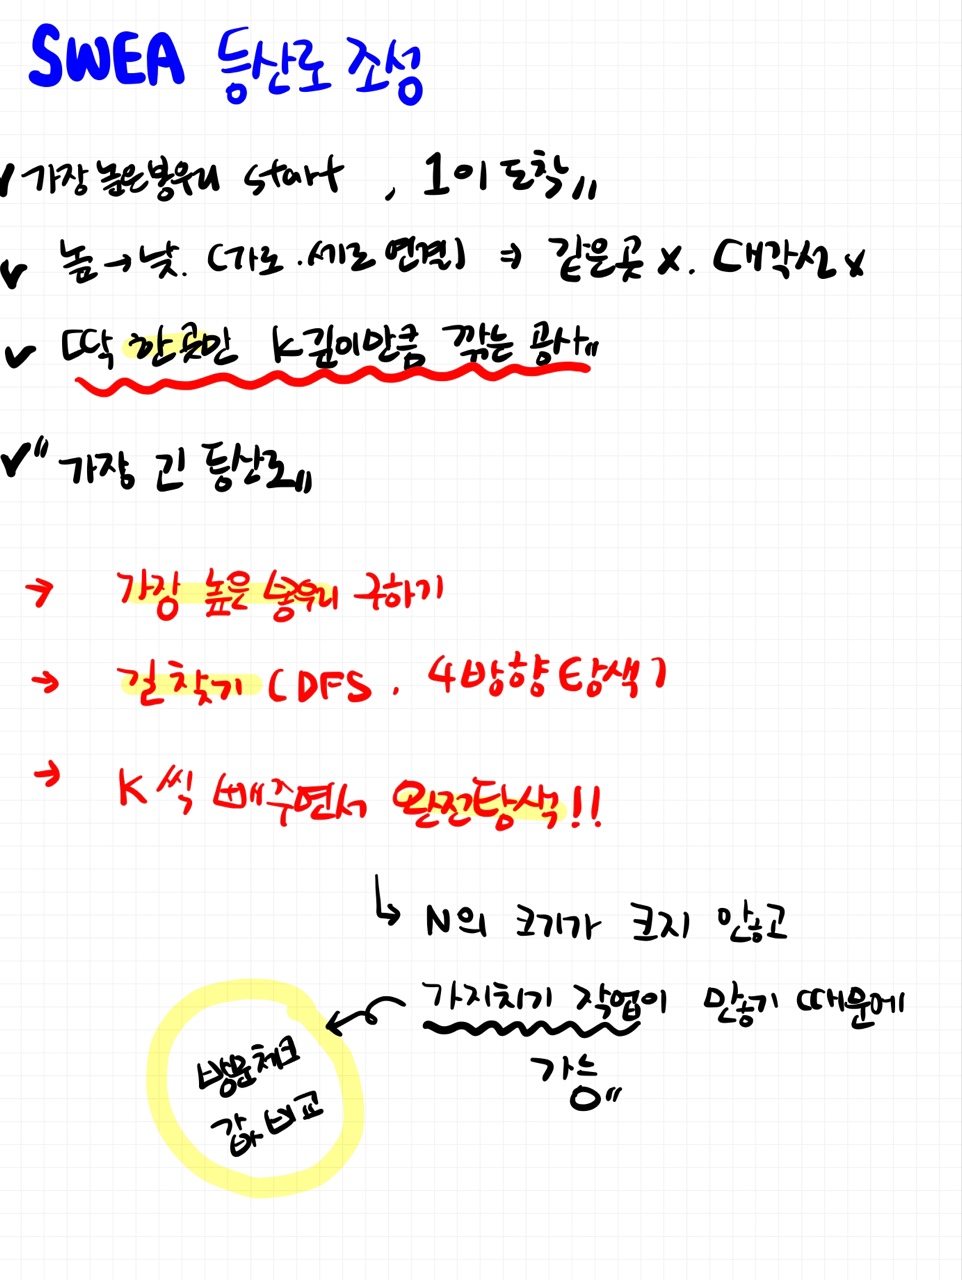 SWEA 등산로 조성
✓ 가장 높은봉우리 start , 1이 도착〃
✓ 높→낮. (가로 . 세로 연결) ⇒ 같은곳 x. 대각선 x
✓ 딱 한곳만 K깊이만큼 깎는 공사〃
✓ " 가장 긴 등산로〃
→ 가장 높은 봉우리 구하기
→ 길찾기 (DFS . 4방향탐색)
→ K씩 빼주면서 완전탐색!!
↳ N의 크기가 크지 않고
가지치기 작업이 많기 때문에
가능〃
방문체크
값 비교